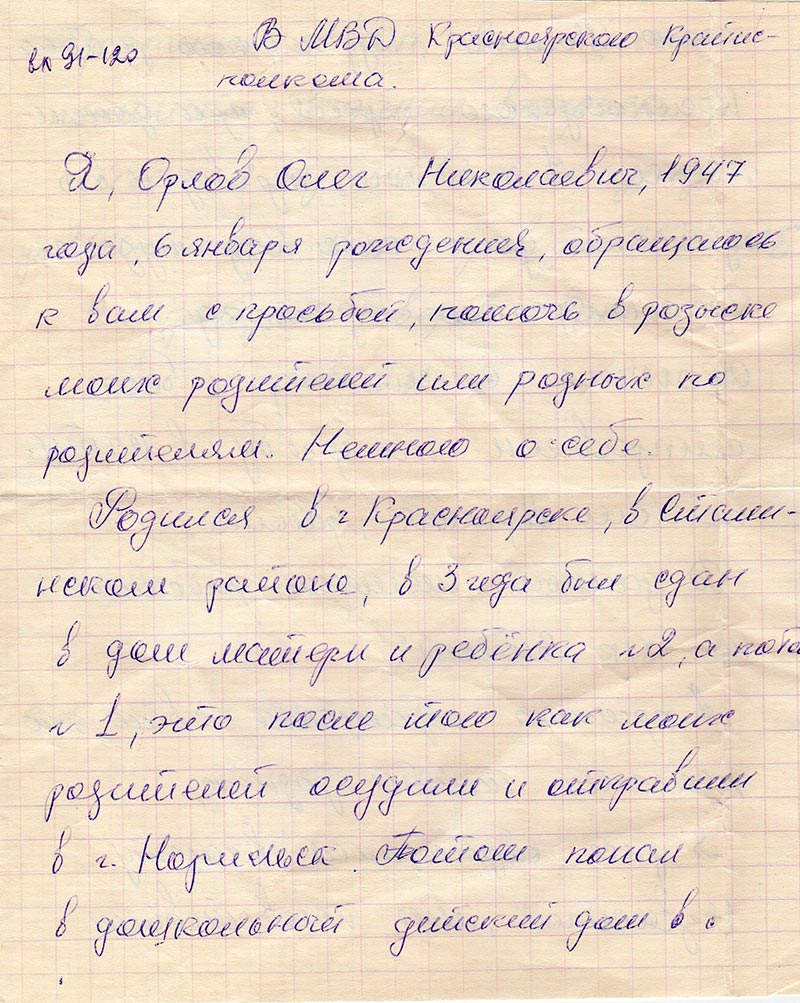 вх 91-120
В МВД Красноярского Крайис-
полкома.
Я, Орлов Олег Николаевич, 1947
года, 6 января рождения, обращаюсь
к вам с просьбой, помочь в розыске
моих родителей или родных по
родителям. Немного о себе.
Родился в г Красноярске, в Стали-
нском районе, в 3 года был сдан
в дом матери и ребёнка № 2, а пото
№ 1, это после того как моих
родителей осудили и отправили
в г. Норильск. Потом попал
в дошкольный детский дом в с